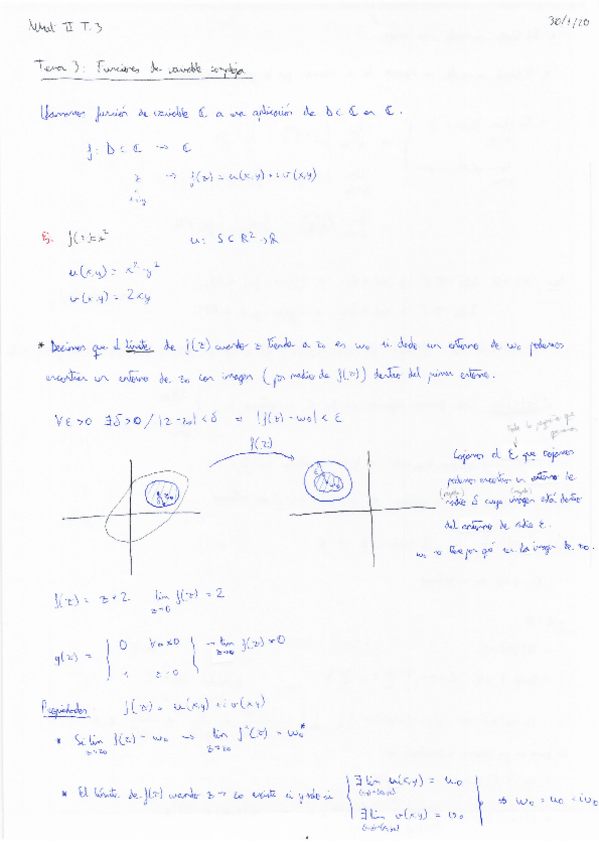 Mat II T.3
30/1/20
Tema 3: Funciones de variable compleja
Llamamos función de variable ℂ a una aplicación de D⊂ℂ en ℂ.
f: D⊂ℂ → ℂ
z → f(z) = u(x,y) + i v(x,y)
x+iy
Ej. f(z)=z² u: S⊂ℝ²→ℝ
u(x,y) = x²-y²
v(x,y) = 2xy
* Decimos que el límite de f(z) cuando z tiende a z₀ es w₀ si dado un entorno de w₀ podemos
encontrar un entorno de z₀ con imagen (por medio de f(z)) dentro del primer entorno.
∀ε>0 ∃δ>0 / |z-z₀|<δ = |f(z)-w₀|<ε
todo lo pequeño que
queramos
f(z)
Cojamos el ε que cojamos
podemos encontrar un entorno de
radio δ cuya imagen está dentro
del entorno de radio ε.
w₀ no tiene por qué ser la imagen de z₀.
f(z) = z+2 lim f(z) = 2
z→0
g(z) = { 0 z≠0 } → lim f(z) = 0
1 z=0 z→0
Propiedades f(z) = u(x,y) + i v(x,y)
* Si lim f(z) = w₀ → lim f*(z) = w₀*
z→z₀ z→z₀
* El límite de f(z) cuando z→z₀ existe si y sólo si { ∃ lim u(x,y) = u₀
∃ lim v(x,y) = v₀ } ⇒ w₀ = u₀ + i v₀